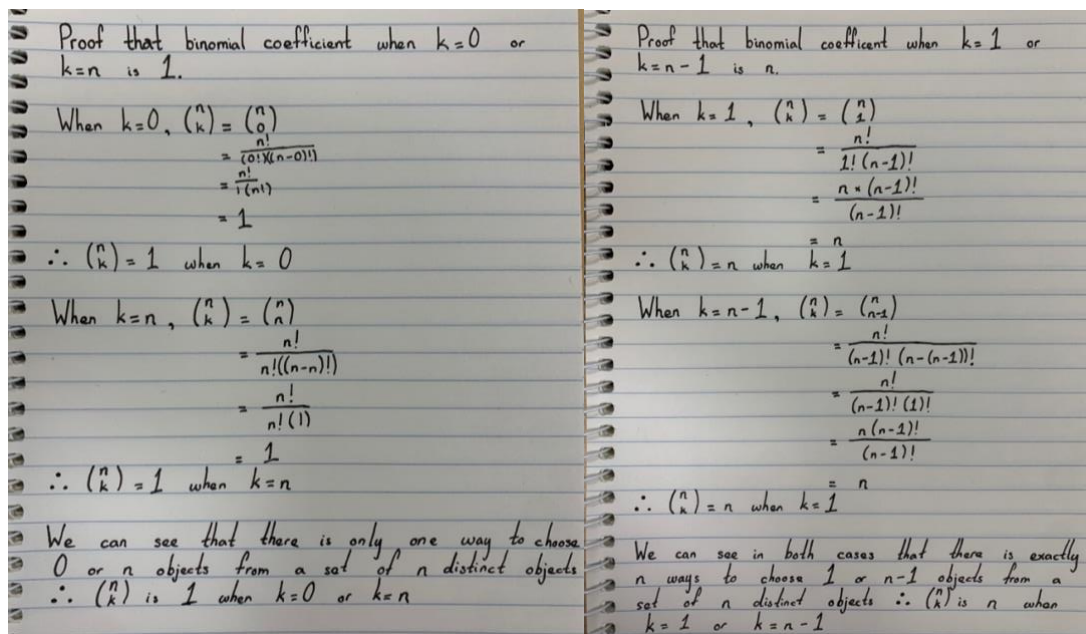 Proof that binomial coefficient when k=0 or
k=n is 1.
When k=0, (n k) = (n 0)
= n!/((0!)((n-0)!))
= n!/(1(n!))
= 1
∴ (n k) = 1 when k= 0
When k=n, (n k) = (n n)
= n!/(n!((n-n)!))
= n!/(n!(1))
= 1
∴ (n k) = 1 when k=n
We can see that there is only one way to choose
0 or n objects from a set of n distinct objects
∴ (n k) is 1 when k=0 or k=n
Proof that binomial coefficent when k=1 or
k=n-1 is n.
When k=1, (n k) = (n 1)
= n!/(1!(n-1)!)
= n×(n-1)!/(n-1)!
= n
∴ (n k) = n when k=1
When k=n-1, (n k) = (n n-1)
= n!/((n-1)! (n-(n-1))!)
= n!/((n-1)! (1)!)
= n(n-1)!/(n-1)!
= n
∴ (n k) = n when k=1
We can see in both cases that there is exactly
n ways to choose 1 or n-1 objects from a
set of n distinct objects ∴ (n k) is n when
k=1 or k=n-1